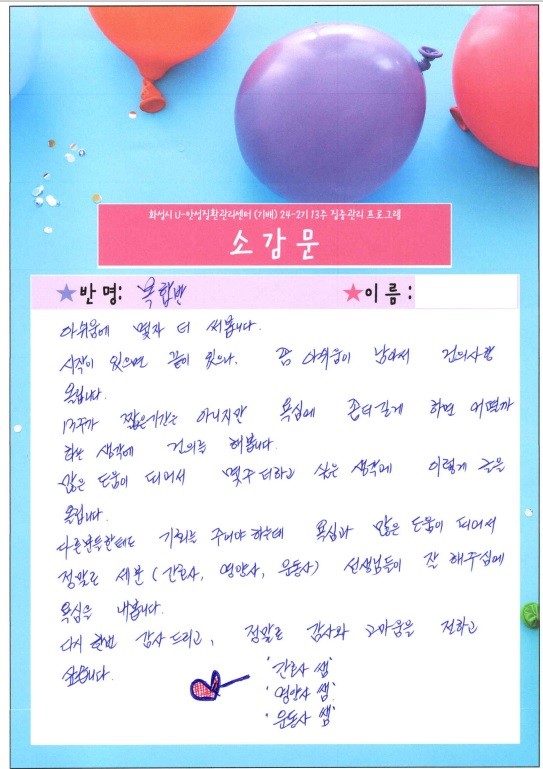 화성시 U-만성질환관리센터 (기배) 24-2기 13주 집중관리 프로그램
소감문
반 명: 복합반
이 름 :
아쉬움에 몇자 더 써봅니다.
시작이 있으면 끝이 있으나. 좀 아쉬움이 남아서 건의사항
올립니다.
13주가 짧은기간는 아니지만 욕심에 좀더길게 하면 어떨까
하는 생각에 건의를 해봅니다.
많은 도움이 되어서 몇주 더하고 싶은 생각에 이렇게 글을
올립니다.
다른분들한테도 기회는 주어야 하는데 욕심과 많은 도움이 되어서
정말로 세분 (간호사, 영양사, 운동사) 선생님들이 잘 해주심에
욕심을 내봅니다.
다시 한번 감사 드리고, 정말로 감사와 고마움을 전하고
싶습니다.
"간호사 쌤"
"영양사 쌤"
"운동사 쌤"